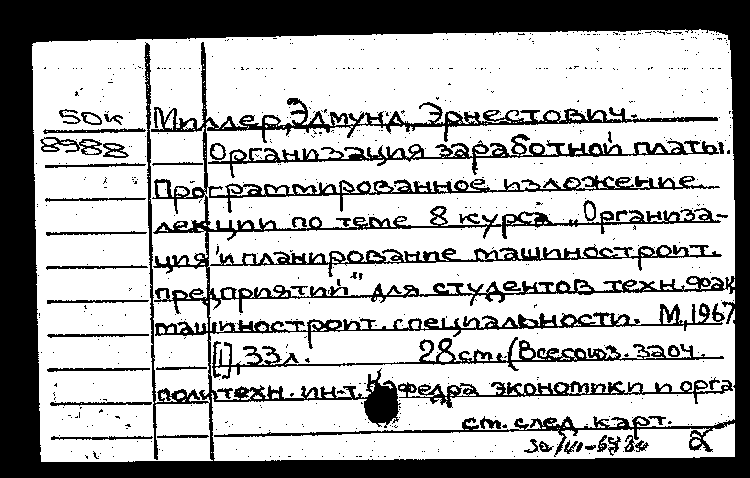 50к Миллер, Эдмунд Эрнестович.
8988 Организация заработной платы.
Программированное изложение
лекции по теме 8 курса „Организа-
ция и планирование машиностроит.
предприятий" для студентов техн. фак
машиностроит. специальности. М, 1967
[1], 33л. 28 см. (Всесоюз. заоч.
политехн. ин-т. Кафедра экономики и орга
см. след. карт.